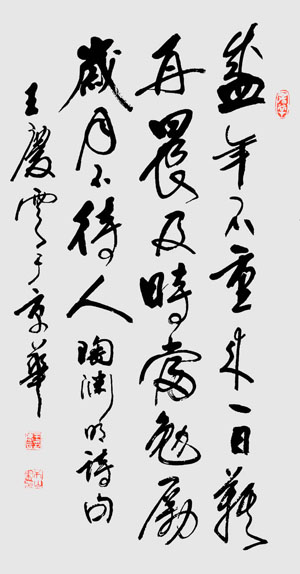 盛年不重来一日難
再晨及時當勉勵
歲月不待人陶渊明詩句
王慶雲于京華